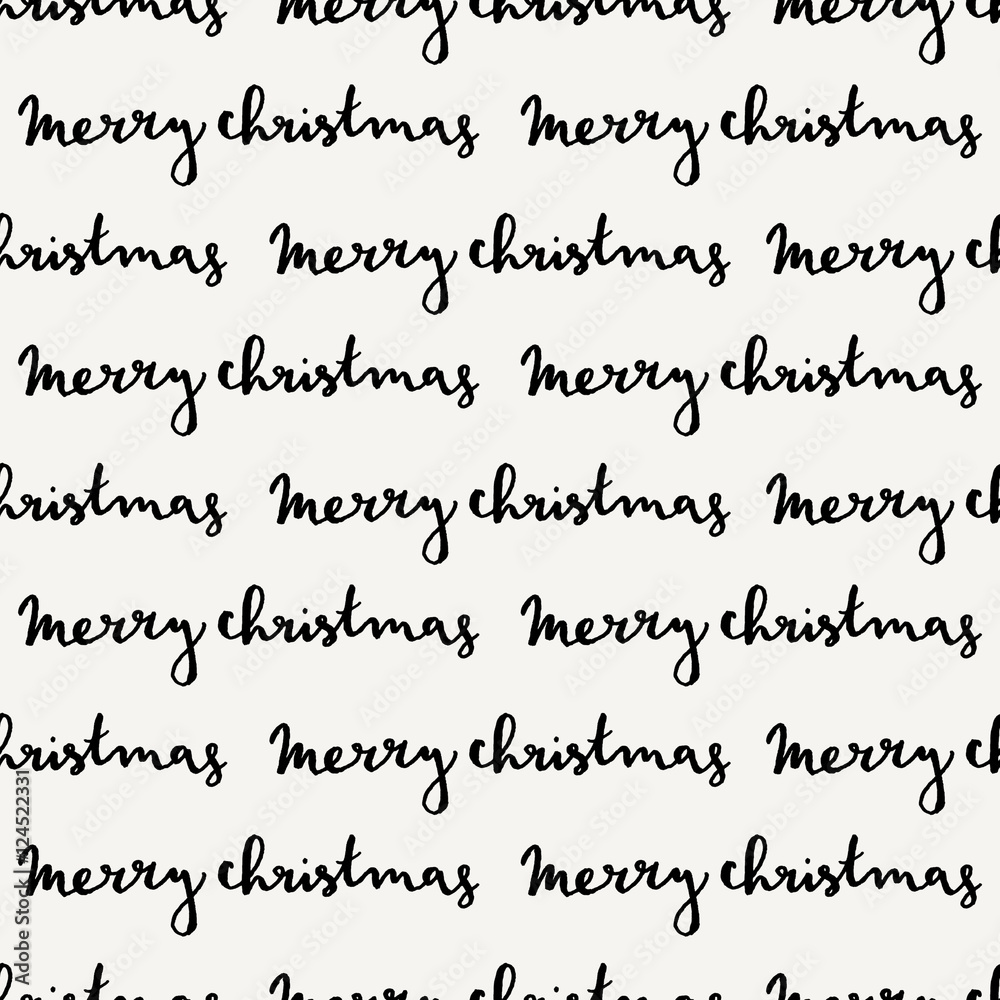 christmas merry christmas merry ch
merry christmas merry christmas
christmas merry christmas merry ch
merry christmas merry christmas
christmas merry christmas merry ch
merry christmas merry christmas
christmas merry christmas merry ch
merry christmas merry christmas
christmas merry christmas merry ch
Adobe Stock | #124522331